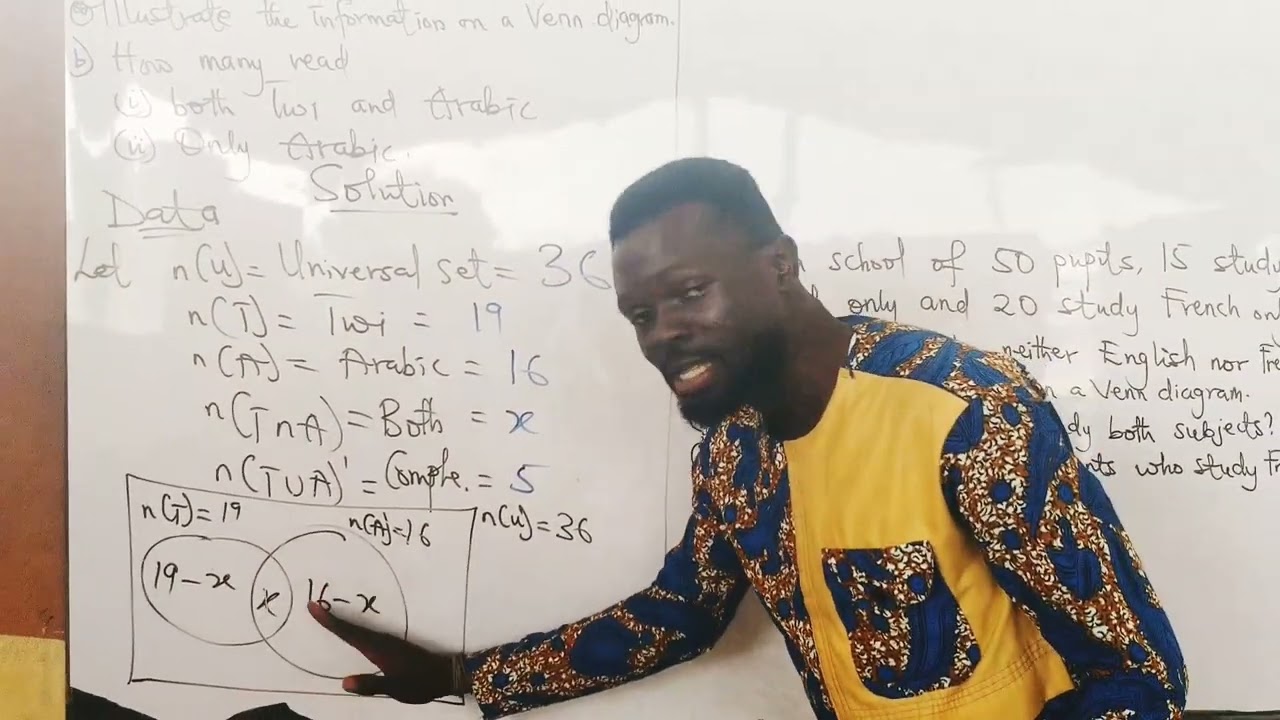 Illustrate the Information on a Venn diagram.
b) How many read
(i) both Twi and Arabic
(ii) Only Arabic.
Solution
Data
Let n(U) = Universal set = 36
n(T) = Twi = 19
n(A) = Arabic = 16
n(T∩A) = Both = x
n(T∪A)' = Comple. = 5
n(T) = 19
n(A) = 16
n(U) = 36
19 - x
x
16 - x
school of 50 pupils, 15 study
only and 20 study French
neither English nor
a Venn diagram.
both subjects?
who study